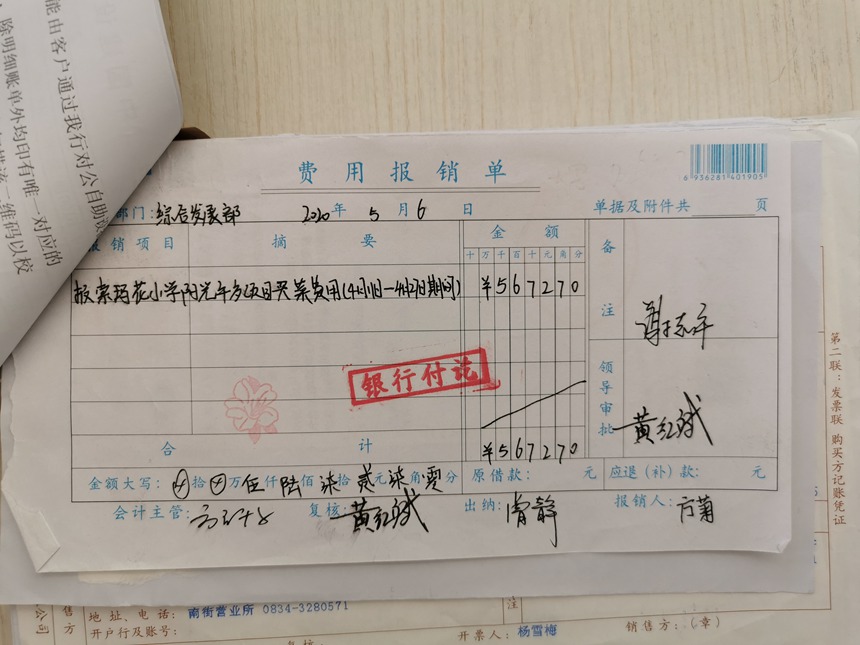 能由客户通过我行对公自助
除明细账单外均印有唯一对应的
二维码以校
费用报销单
6 936281 401905
部门:综合发展部 2020年5月6日 单据及附件共 页
报销项目 摘要 金额 备注
十万千百十元角分
报索玛花小学阳光午餐项目买菜费用(4月1日-4月27日期间) ¥567270
银行付讫
领导审批 黄红斌
合计 ¥567270
金额大写:⊕拾⊕万伍仟陆佰柒拾贰元柒角零分 原借款: 元 应退(补)款: 元
会计主管: 复核:黄红斌 出纳:曾静 报销人:方菊
第二联:发票联 购买方记账凭证
公司
销售方
地址、电话: 南街营业所 0834-3280571
开户行及账号:
注
复核:
开票人: 杨雪梅
销售方:(章)